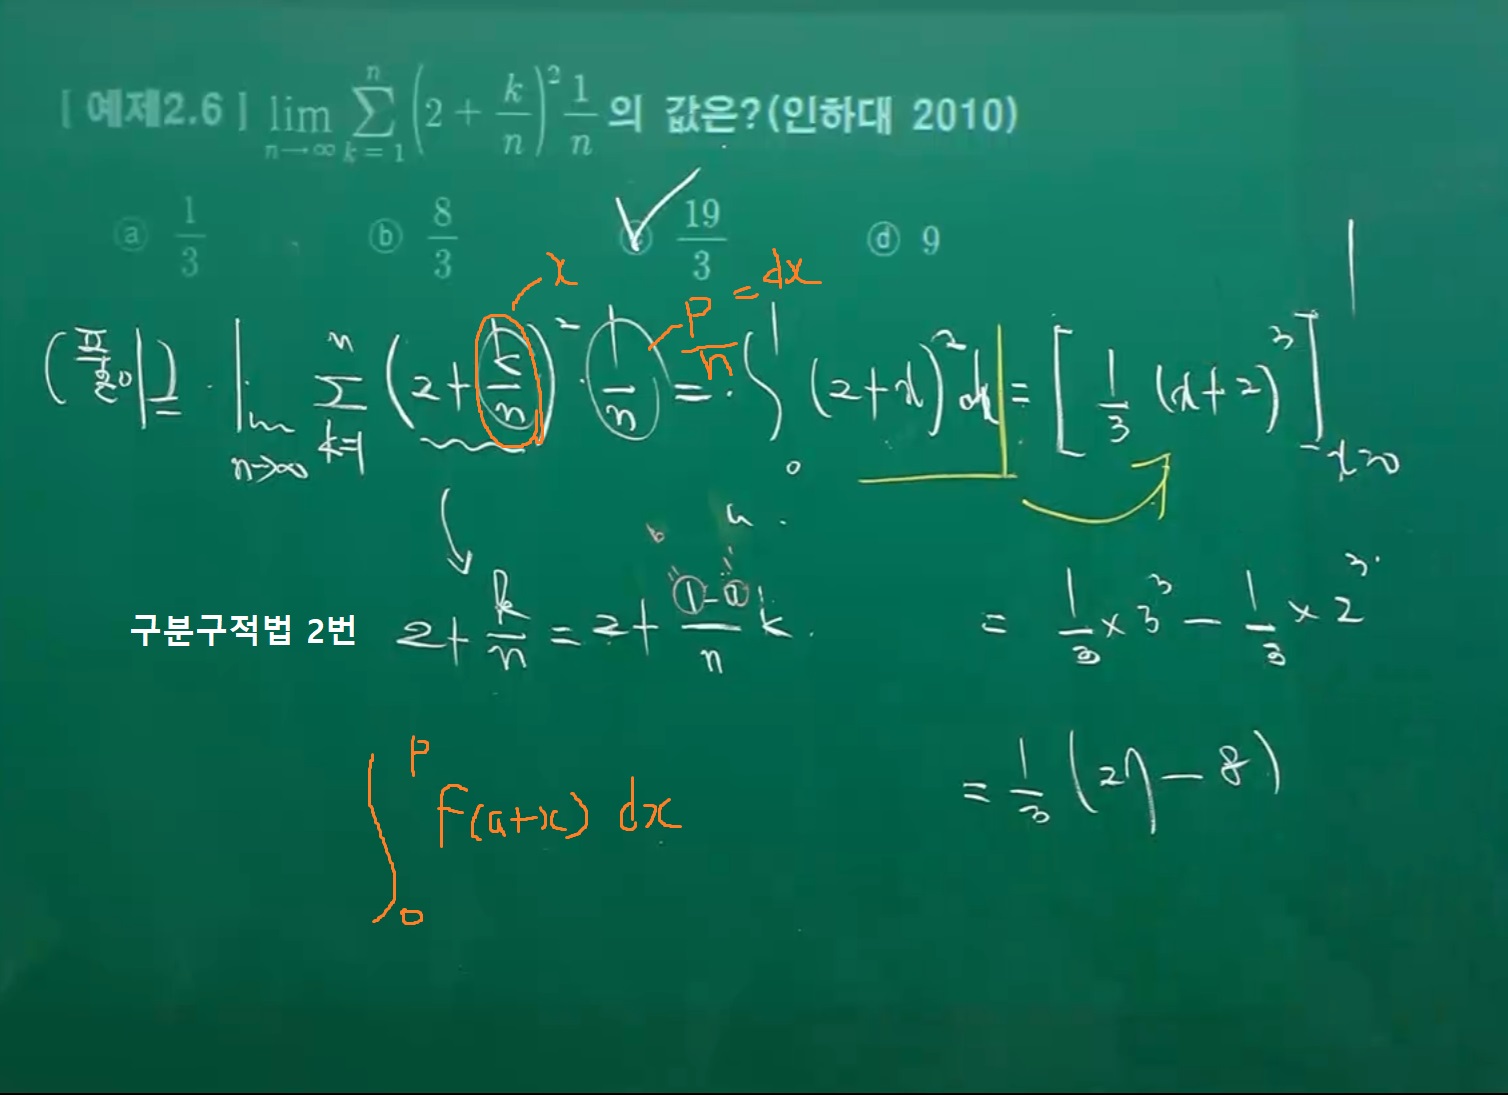 [ 예제2.6 ] lim n→∞ ∑ k=1 n (2 + k/n)² 1/n 의 값은?(인하대 2010)
ⓐ 1/3 ⓑ 8/3 ✓ⓒ 19/3 ⓓ 9
x
P/n = dx
1) · lim n→∞ ∑ k=1 n (2+k/n)² · 1/n = · ∫₀¹ (2+x)² dx = [ 1/3 (x+2)³ ] x=0 1
b a .
구분구적법 2번 2+k/n = 2+ (1-0)/n k .
= 1/3 × 3³ - 1/3 × 2³
∫₀ᴾ F(a+x) dx
= 1/3 (27 - 8)